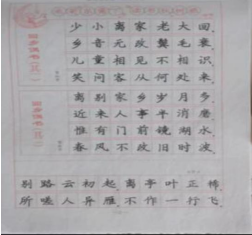 少小离家老大回
乡音无改鬓毛衰
儿童相见不相识
笑问客从何处来
离别家乡岁月多
近来人事半消磨
惟有门前镜湖水
春风不改旧时波
别路云初起离亭叶正稀
所嗟人异雁不作一行飞